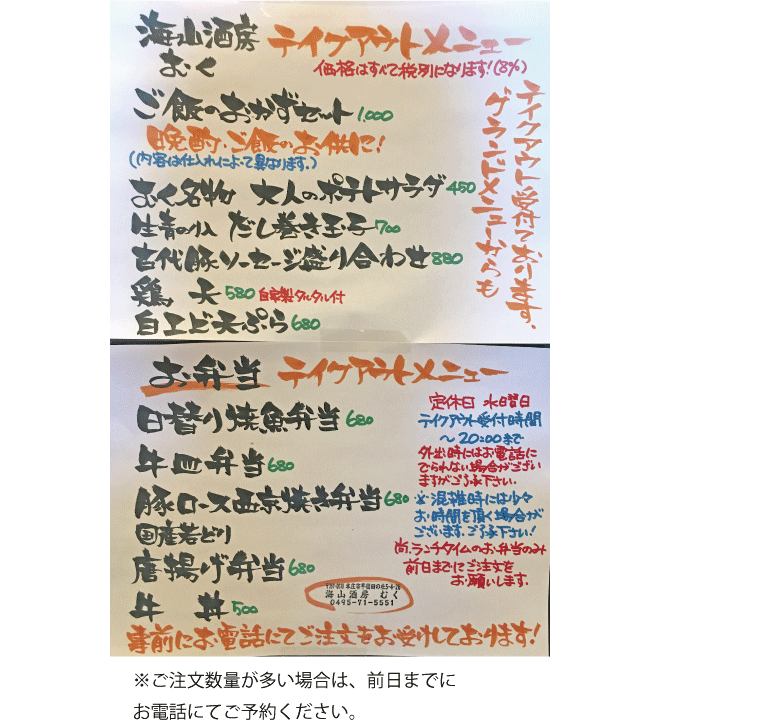 海山酒房 テイクアウトメニュー
むく
価格はすべて税別になります!(8%)
テイクアウト受付ております。
グランドメニューからも
ご飯のおかずセット 1,000
晩酌・ご飯のお供に!
(内容は仕入れによって異なります。)
むく名物 大人のポテトサラダ 450
生青のり入 だし巻き玉子 700
古代豚ソーセージ盛り合わせ 880
鶏 天 580 自家製タルタル付
白エビ天ぷら 680
お弁当 テイクアウトメニュー
日替り焼魚弁当 680
牛皿弁当 680
豚ロース西京焼き弁当 680
国産若どり
唐揚げ弁当 680
牛 丼 500
定休日 水曜日
テイクアウト受付時間
~20:00まで
外出時にはお電話に
でられない場合がござい
ますがご了承下さい。
※混雑時には少々
お時間を頂く場合が
ございます。ご了承下さい!
尚、ランチタイムのお弁当のみ
前日までにご注文を
お願いします。
海山酒房 むく
0495-71-5551
事前にお電話にてご注文をお受けしております!
※ご注文数量が多い場合は、前日までに
お電話にてご予約ください。